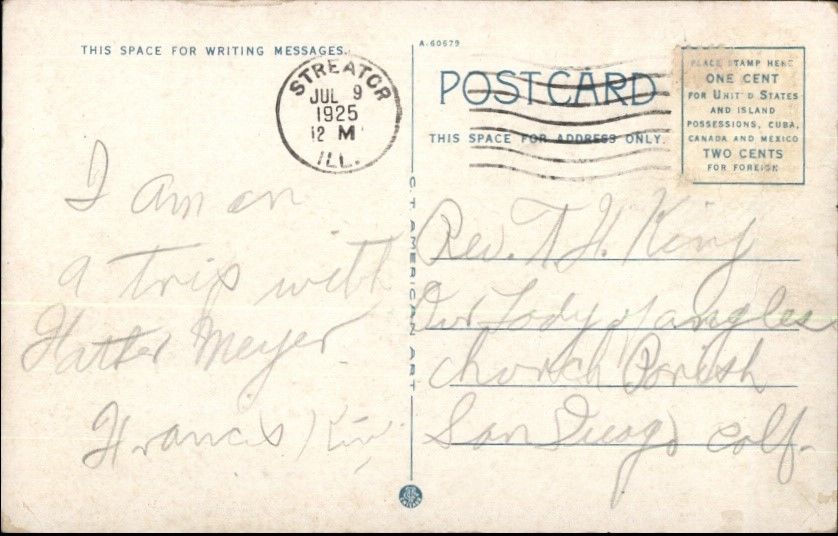 THIS SPACE FOR WRITING MESSAGES.
STREATOR
JUL 9
1925
12 M
ILL.
I am on
a trip with
Meyer
Francis
C. T. AMERICAN ART
A-60679
POST CARD
THIS SPACE FOR ADDRESS ONLY.
PLACE STAMP HERE
ONE CENT
FOR UNIT D STATES
AND ISLAND
POSSESSIONS, CUBA,
CANADA AND MEXICO
TWO CENTS
FOR FOREIGN
Rev. T H. King
Our Lady of angles
church Parish
San Diago Calf.